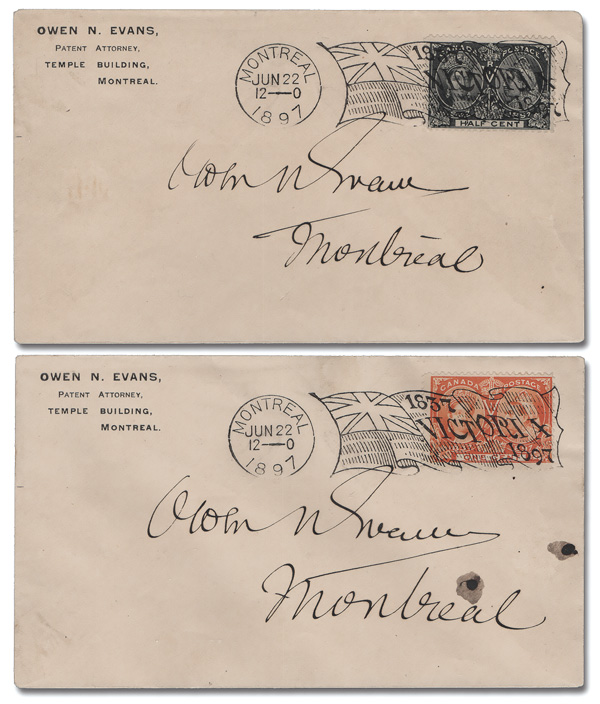 OWEN N. EVANS,
PATENT ATTORNEY,
TEMPLE BUILDING,
MONTREAL.
MONTREAL
JUN 22
12—0
1897
1837
VICTORIA
1897
CANADA POSTAGE
HALF CENT
Owen N Evans
Montreal
OWEN N. EVANS,
PATENT ATTORNEY,
TEMPLE BUILDING,
MONTREAL.
MONTREAL
JUN 22
12—0
1897
1837
VICTORIA
1897
CANADA POSTAGE
ONE
Owen N Evans
Montreal